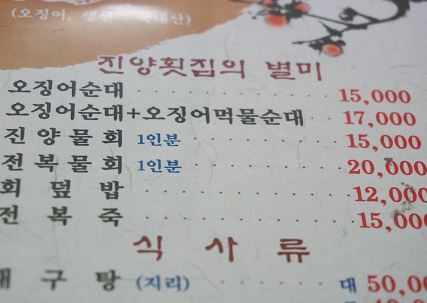 (오징어, 생선 : 국내산)
진양횟집의 별미
오징어순대 15,000
오징어순대+오징어먹물순대 17,000
진양물회 1인분 15,000
전복물회 1인분 20,000
회덮밥 12,000
전복죽 15,000
식사류
대구탕 (지리) 대 50,00